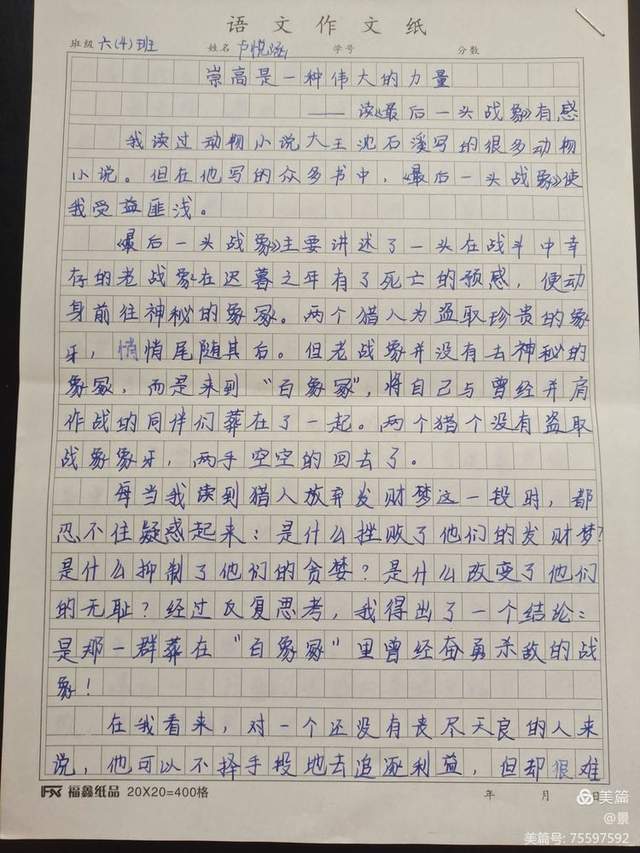 语文作文纸
班级 六(4)班 姓名 卢悦涵 学号 分数
崇高是一种伟大的力量
——读《最后一头战象》有感
我读过动物小说大王沈石溪写的很多动物
小说。但在他写的众多书中，《最后一头战象》使
我受益匪浅。
《最后一头战象》主要讲述了一头在战斗中幸
存的老战象在迟暮之年有了死亡的预感，便动
身前往神秘的象冢。两个猎人为盗取珍贵的象
牙，悄悄尾随其后。但老战象并没有去神秘的
象冢，而是来到“百象冢”，将自己与曾经并肩
作战的同伴们葬在了一起。两个猎个没有盗取
战象象牙，两手空空的回去了。
每当我读到猎人放弃发财梦这一段时，都
忍不住疑惑起来：是什么挫败了他们的发财梦？
是什么抑制了他们的贪婪？是什么改变了他们
的无耻？经过反复思考，我得出了一个结论：
是那一群葬在“百象冢”里曾经奋勇杀敌的战
象！
在我看来，对一个还没有丧尽天良的人来
说，他可以不择手段地去追逐利益，但却很难
FX 福鑫纸品 20X20=400格 年 月 日
美篇
@景
美篇号: 75597592